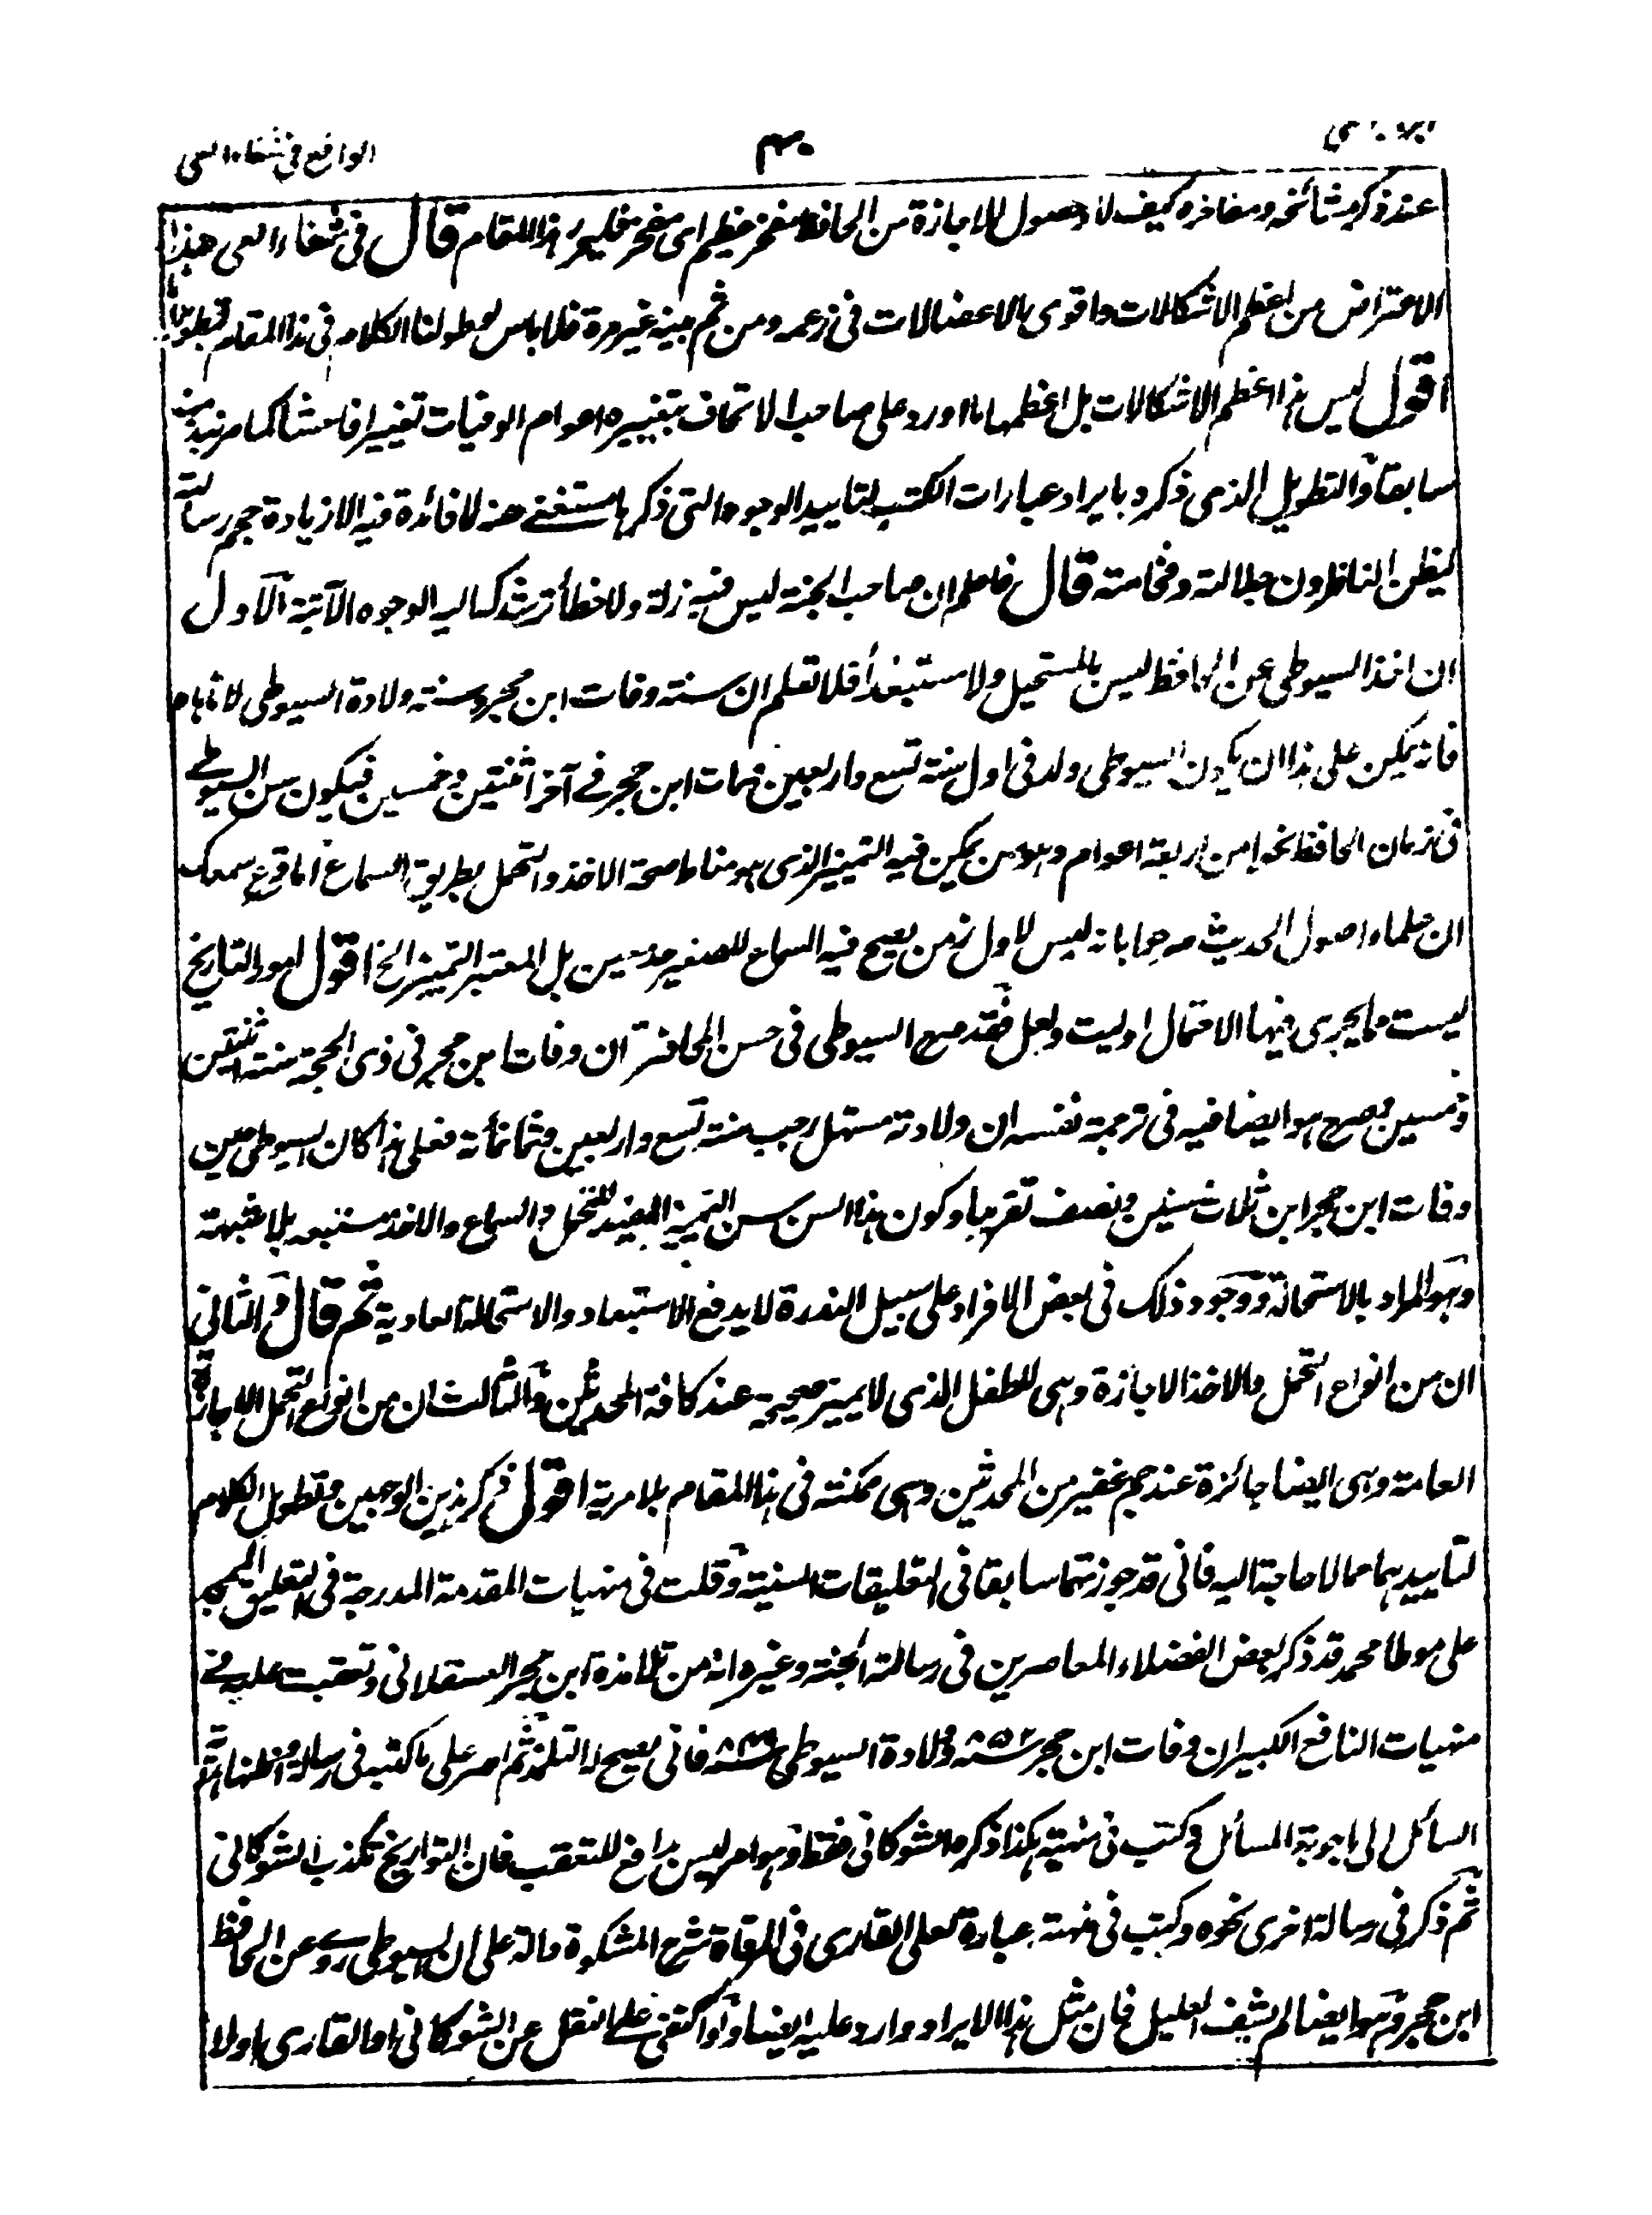 الواقع في شفاء العي
٤٠
عند ذكر مشائخه ومفاخره كيف لا وحصول الاجازة من الحافظ مفخر عظيم اى مفخر فليحرر هذا المقام قال في شفاء العي هذا
الاعتراض من اعظم الاشكالات واقوى بالاعضالات في زعمه ومن ثم بينه غير مرة فلا باس لو طولنا الكلام في هذا المقام
اقول ليس هذا اعظم الاشكالات بل اعظمها ما اورد على صاحب الاتحاف بتغييره اعوام الوفيات تغييرا فاحشا كما مر نبذ منه
سابقا والتطويل الذى ذكره بايراد عبارات الكتب لتاييد الوجوه التى ذكرها مستغنے عنه لا فائدة فيه الا زيادة حجم رسالته
ليظن الناظرون جلالته وفخامته قال فاعلم ان صاحب الجنة ليس فيه زلة ولا خطأ ترشدك اليه الوجوه الآتية الآول
ان اخذ السيوطى عن الحافظ ليس بالمستحيل ولا مستبعدا فلا تعلم ان سنة وفات ابن حجر وسنة ولادة السيوطى لا تاباه
فانه يمكن على هذا ان يكون السيوطى ولد فى اول سنة تسع واربعين ومات ابن حجر فے آخر اثنتين وخمسين فيكون سن السيوطے
فى زمان الحافظ نحوا من اربعة اعوام وهو من يمكن فيه التمييز الذى هو مناط صحة الاخذ والتحمل بطريق السماع اما قرع سمعك
ان علماء اصول الحديث صرحوا بانه ليس لاول زمن يصح فيه السماع للصغير حد معين بل المعتبر التمييز الخ اقول امور التاريخ
ليست مما يجرى فيها الاحتمال اوليت ولعل فقد صرح السيوطى فى حسن المحاضرة ان وفات ابن حجر فى ذى الحجة سنة اثنتين
وخمسين وصرح هو ايضا فيه فى ترجمة نفسه ان ولادته مستهل رجب سنة تسع واربعين وثمانمائة فعلى هذا كان السيوطى حين
وفات ابن حجر ابن ثلاث سنين ونصف تقريبا وكون هذا السن سن التمييز المفيد للتحمل والسماع والاخذ مستبعد بلا شبهة
وهو المراد بالاستحالة ووجود ذلك فى بعض الافراد على سبيل الندرة لا يدفع الاستبعاد والاستحالة العادية ثم قال والثانى
ان من انواع التحمل والاخذ الاجازة وهى للطفل الذى لا يميز صحيحة عند كافة المحدثين والثالث ان من انواع التحمل الاجازة
العامة وهى ايضا جائزة عند جم غفير من المحدثين وهى ممكنة فى هذا المقام بلا مرية اقول ذكر هذين الوجهين وتطويل الكلام
لتاييدهما مما لا حاجة اليه فانى قد جوزتهما سابقا فى التعليقات السنية وقلت فى منهيات المقدمة المدرجة فى التعليق الممجد
على موطا محمد قد ذكر بعض الفضلاء المعاصرين فى رسالته الجنة وغيره انه من تلامذة ابن حجر العسقلانى وتعقبت عليه فے
منهيات النافع الكبير ان وفات ابن حجر ٨٥٢سنه وولادة السيوطى ٨٤٩سنه فانى يصح له التلمذ ثم اصر على ما كتبه فى رسالة
السائل الى اجوبة المسائل وكتب فى منهيته هكذا ذكره الشوكانى فقط وهو امر ليس بدافع للتعقب فان التواريخ تكذب الشوكانى
ثم ذكر فى رسالة اخرى نحوه وكتب فى منهية عبارة لعلى القارى فى المرقاة شرح المشكوة دالة على ان السيوطى روے عن الحافظ
ابن حجر وهو ايضا لم يشف العليل فان مثل هذا الايراد وارد عليه ايضا ولو اكتفى على النقل عن الشوكانى او القارى اولا